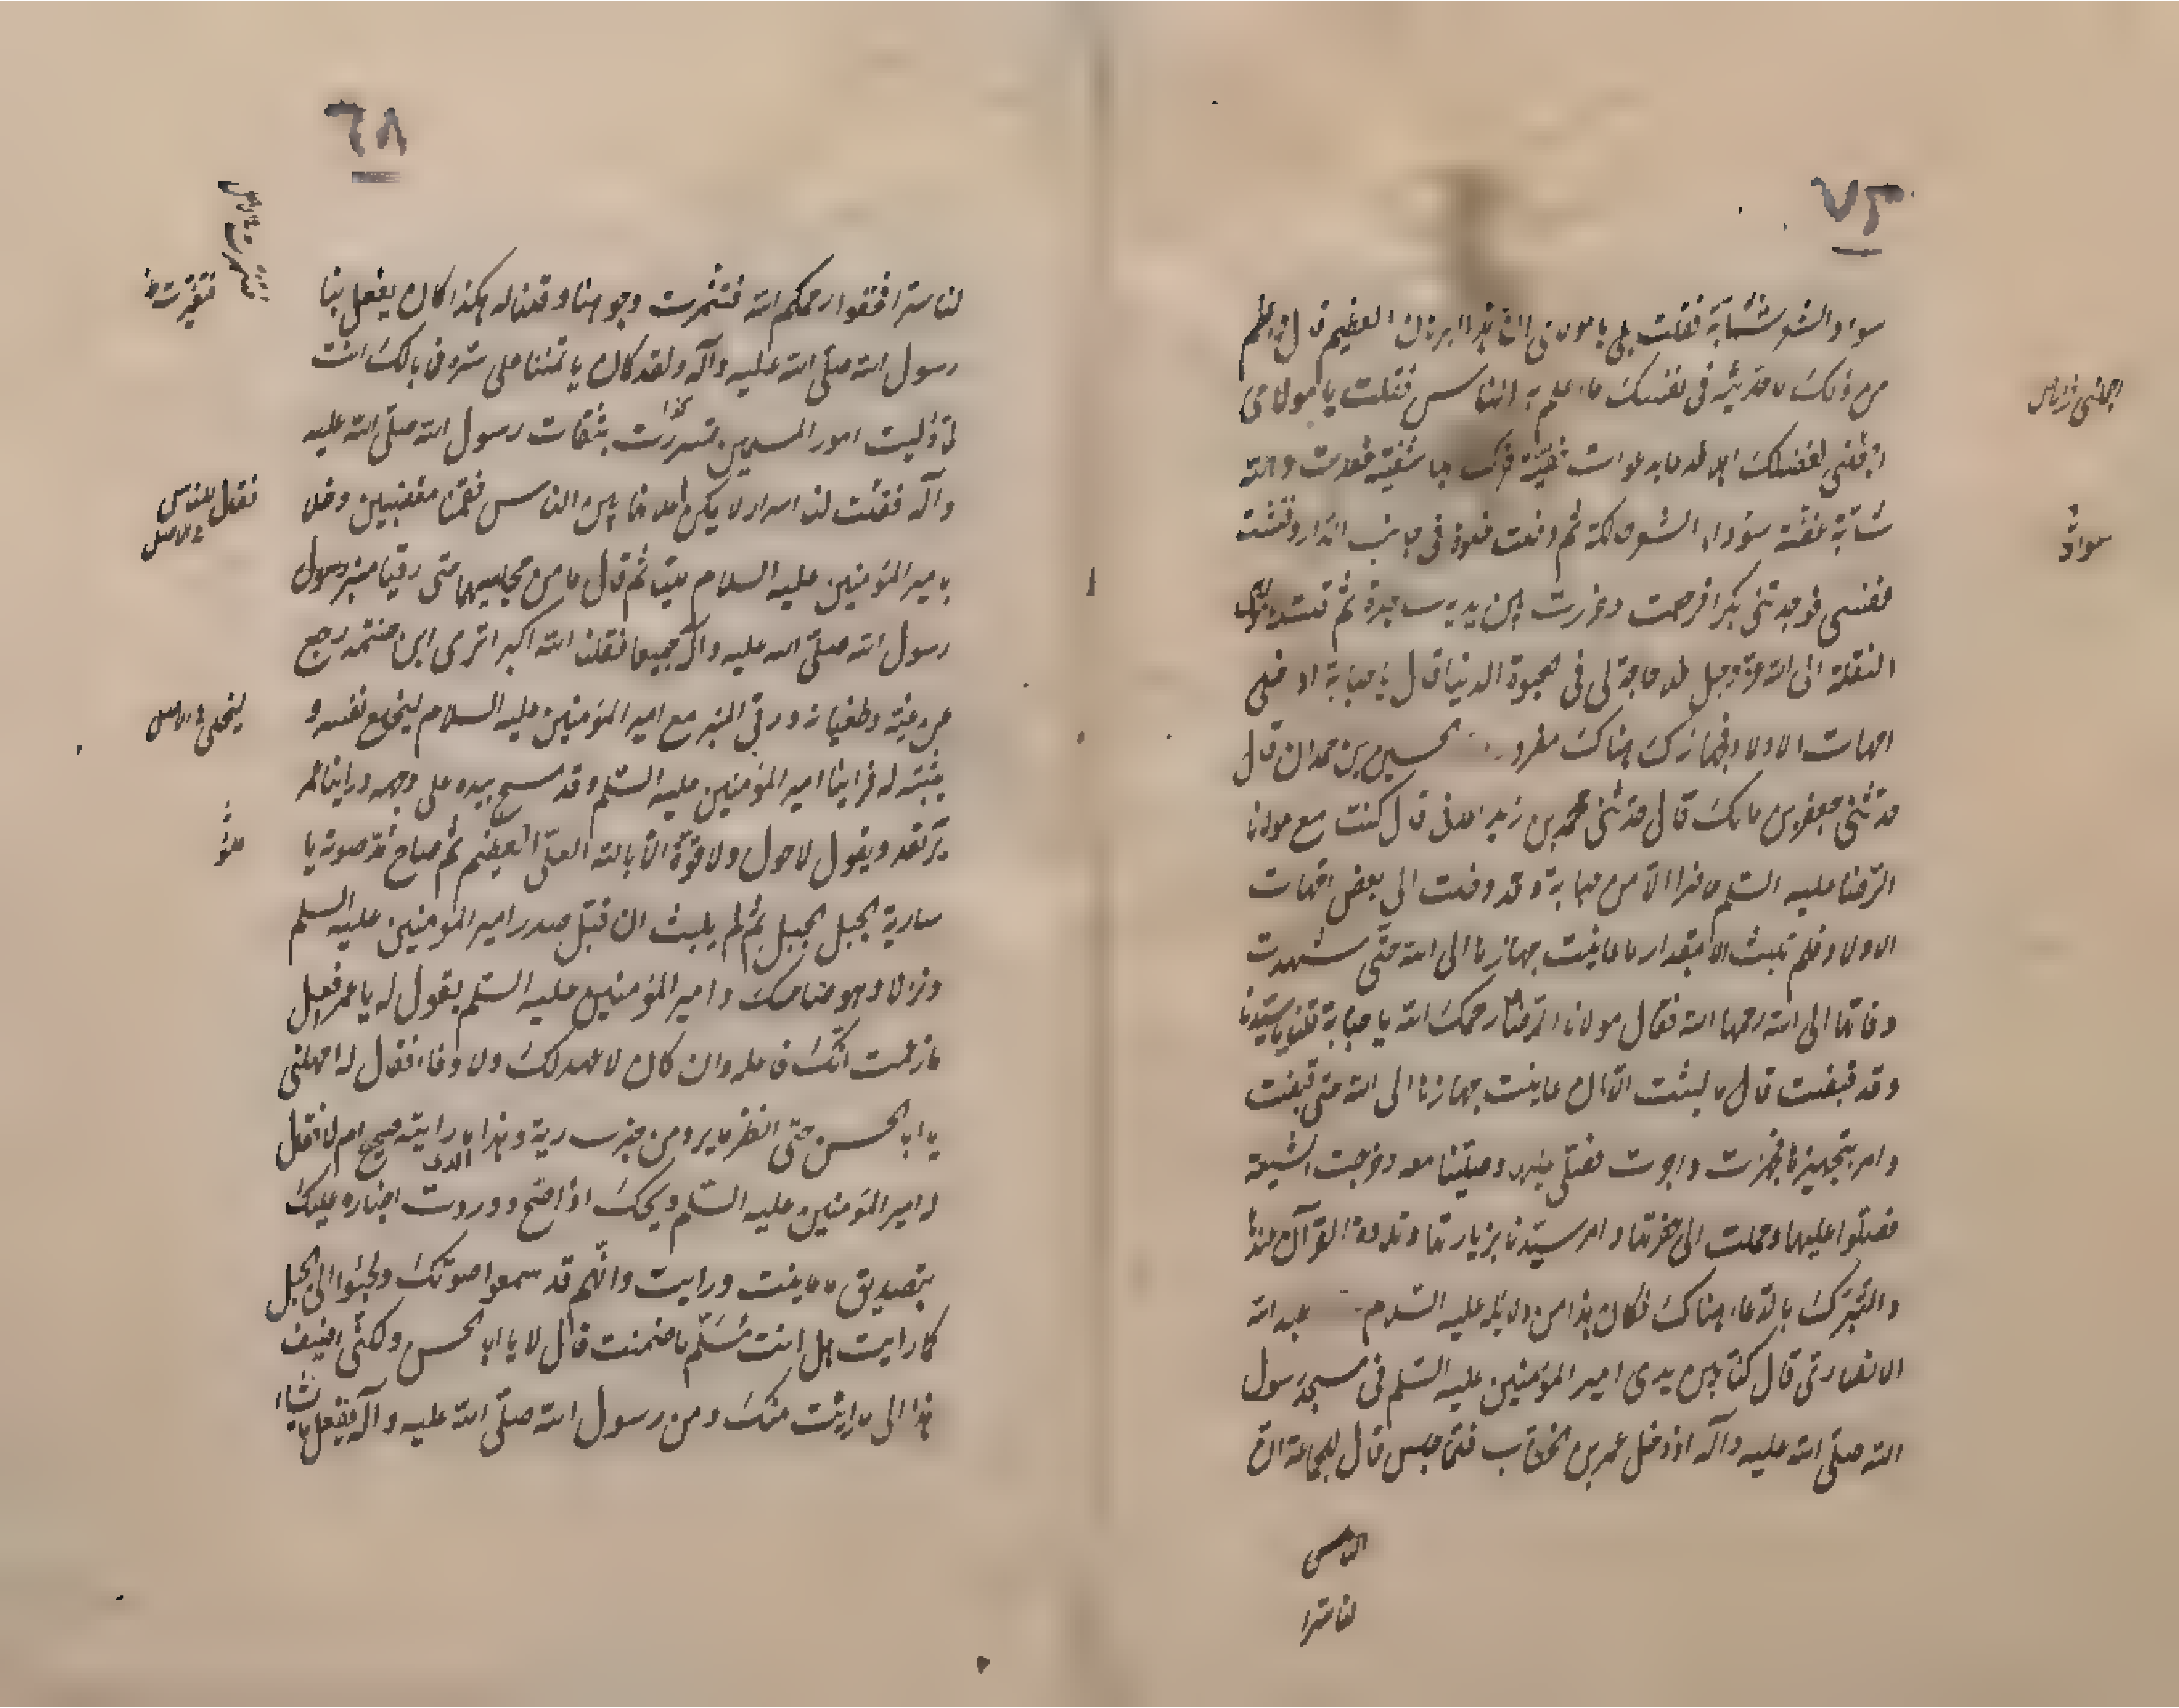 ٧٣
سواد الشعر شابة فقلت بلى يا مولاى ان هذا البرهان العظيم قال واعظم
من ذلك ما تجدينه فى نفسك ما اعلم به الناس فقلت يا مولاى
اجعلنى لفضلك اهلا فدعا بدعوات خفية حرك بها شفتيه فعدت والله
شابة غضة سوداء الشعر حالكة ثم دخلت خلوة فى جانب الدار وفتشت
نفسى فوجدتنى بكرا فرجعت وخررت بين يديه ساجدة ثم قلت يا مولاى
النقلة الى الله عز وجل فلا حاجة لى فى الحيوة الدنيا قال يا حبابة ادخلى
امهات الاولاد فجهازك هناك مفرد الحسين بن حمدان قال
حدثنى جعفر بن مالك قال حدثنى محمد بن زيد المدنى قال كنت مع مولانا
الرضا عليه السلم حاضرا لامر حبابة وقد دخلت الى بعض امهات
الاولاد فلم تلبث الا بمقدار ما عاينت جهازها الى الله حتى شهدت
وفاتها الى الله رحمها الله فقال مولانا الرضا رحمك الله يا حبابة قلنا يا سيدنا
وقد قبضت قال ما لبثت الا ان عاينت جهازها الى الله حتى قبضت
وامر بتجهيزها فجهزت واخرجت فصلى عليها وصلينا معه وخرجت الشيعة
فصلوا عليها وحملت الى حفرتها وامر سيدنا بزيارتها وتلاوة القرآن عندها
والتبرك بالدعاء هناك فكان هذا من دلايله عليه السلام عبد الله
الانصارى قال كنا بين يدى امير المؤمنين عليه السلم فى مسجد رسول
الله صلى الله عليه وآله اذ دخل عمر بن الخطاب فلما جلس قال للجماعة ان
سوادا
لنا سرا
٦٨
لنا سرا فخففوا رحمكم الله فتشمرت وجوهنا وقلنا له هكذا كان يفعل بنا
رسول الله صلى الله عليه وآله ولقد كان ياتمننا على سره فما بالك انت
لما وليت امور المسلمين تسررت بثقات رسول الله صلى الله عليه
وآله فقلت لنا اسرار لا يمكن اعلانها بين الناس فقمنا مغضبين وخلا
بامير المؤمنين عليه السلام مليا ثم قاما من مجلسهما حتى رقيا منبر رسول
رسول الله صلى الله عليه وآله جميعا فقلنا الله اكبر اترى ابن حنتمه رجع
عن غيه وطغيانه ورقى المنبر مع امير المؤمنين عليه السلام ليخلع نفسه و
يثبته له فراينا امير المؤمنين عليه السلم وقد مسح بيده على وجهه وراينا عمر
يرتعد ويقول لا حول ولا قوة الا بالله العلى العظيم ثم صاح مد صوته يا
سارية الجبل الجبل ثم لم يلبث ان قبل صدر امير المؤمنين عليه السلم
ونزلا وهو ضاحك وامير المؤمنين عليه السلم يقول له يا عمر افعل
ما زعمت انك فاعله وان كان لا عهد لك ولا وفاء فقال له امهلنى
يا ابا الحسن حتى انظر ما يرد من خبر سارية وهذا الذى رايته صحيح ام لا فقال
له امير المؤمنين عليه السلم ويحك اذا صح ووردت اخباره عليك
بتصديق ما عاينت ورايت وانهم قد سمعوا صوتك ولجئوا الى الجبل
كما رايت هل انت مسلم ما ضمنت قال لا يا ابا الحسن ولكنى اضيف
هذا الى ما رايت منك ومن رسول الله صلى الله عليه وآله يفعل ما يشاء
فتغيرت
فقال للناس